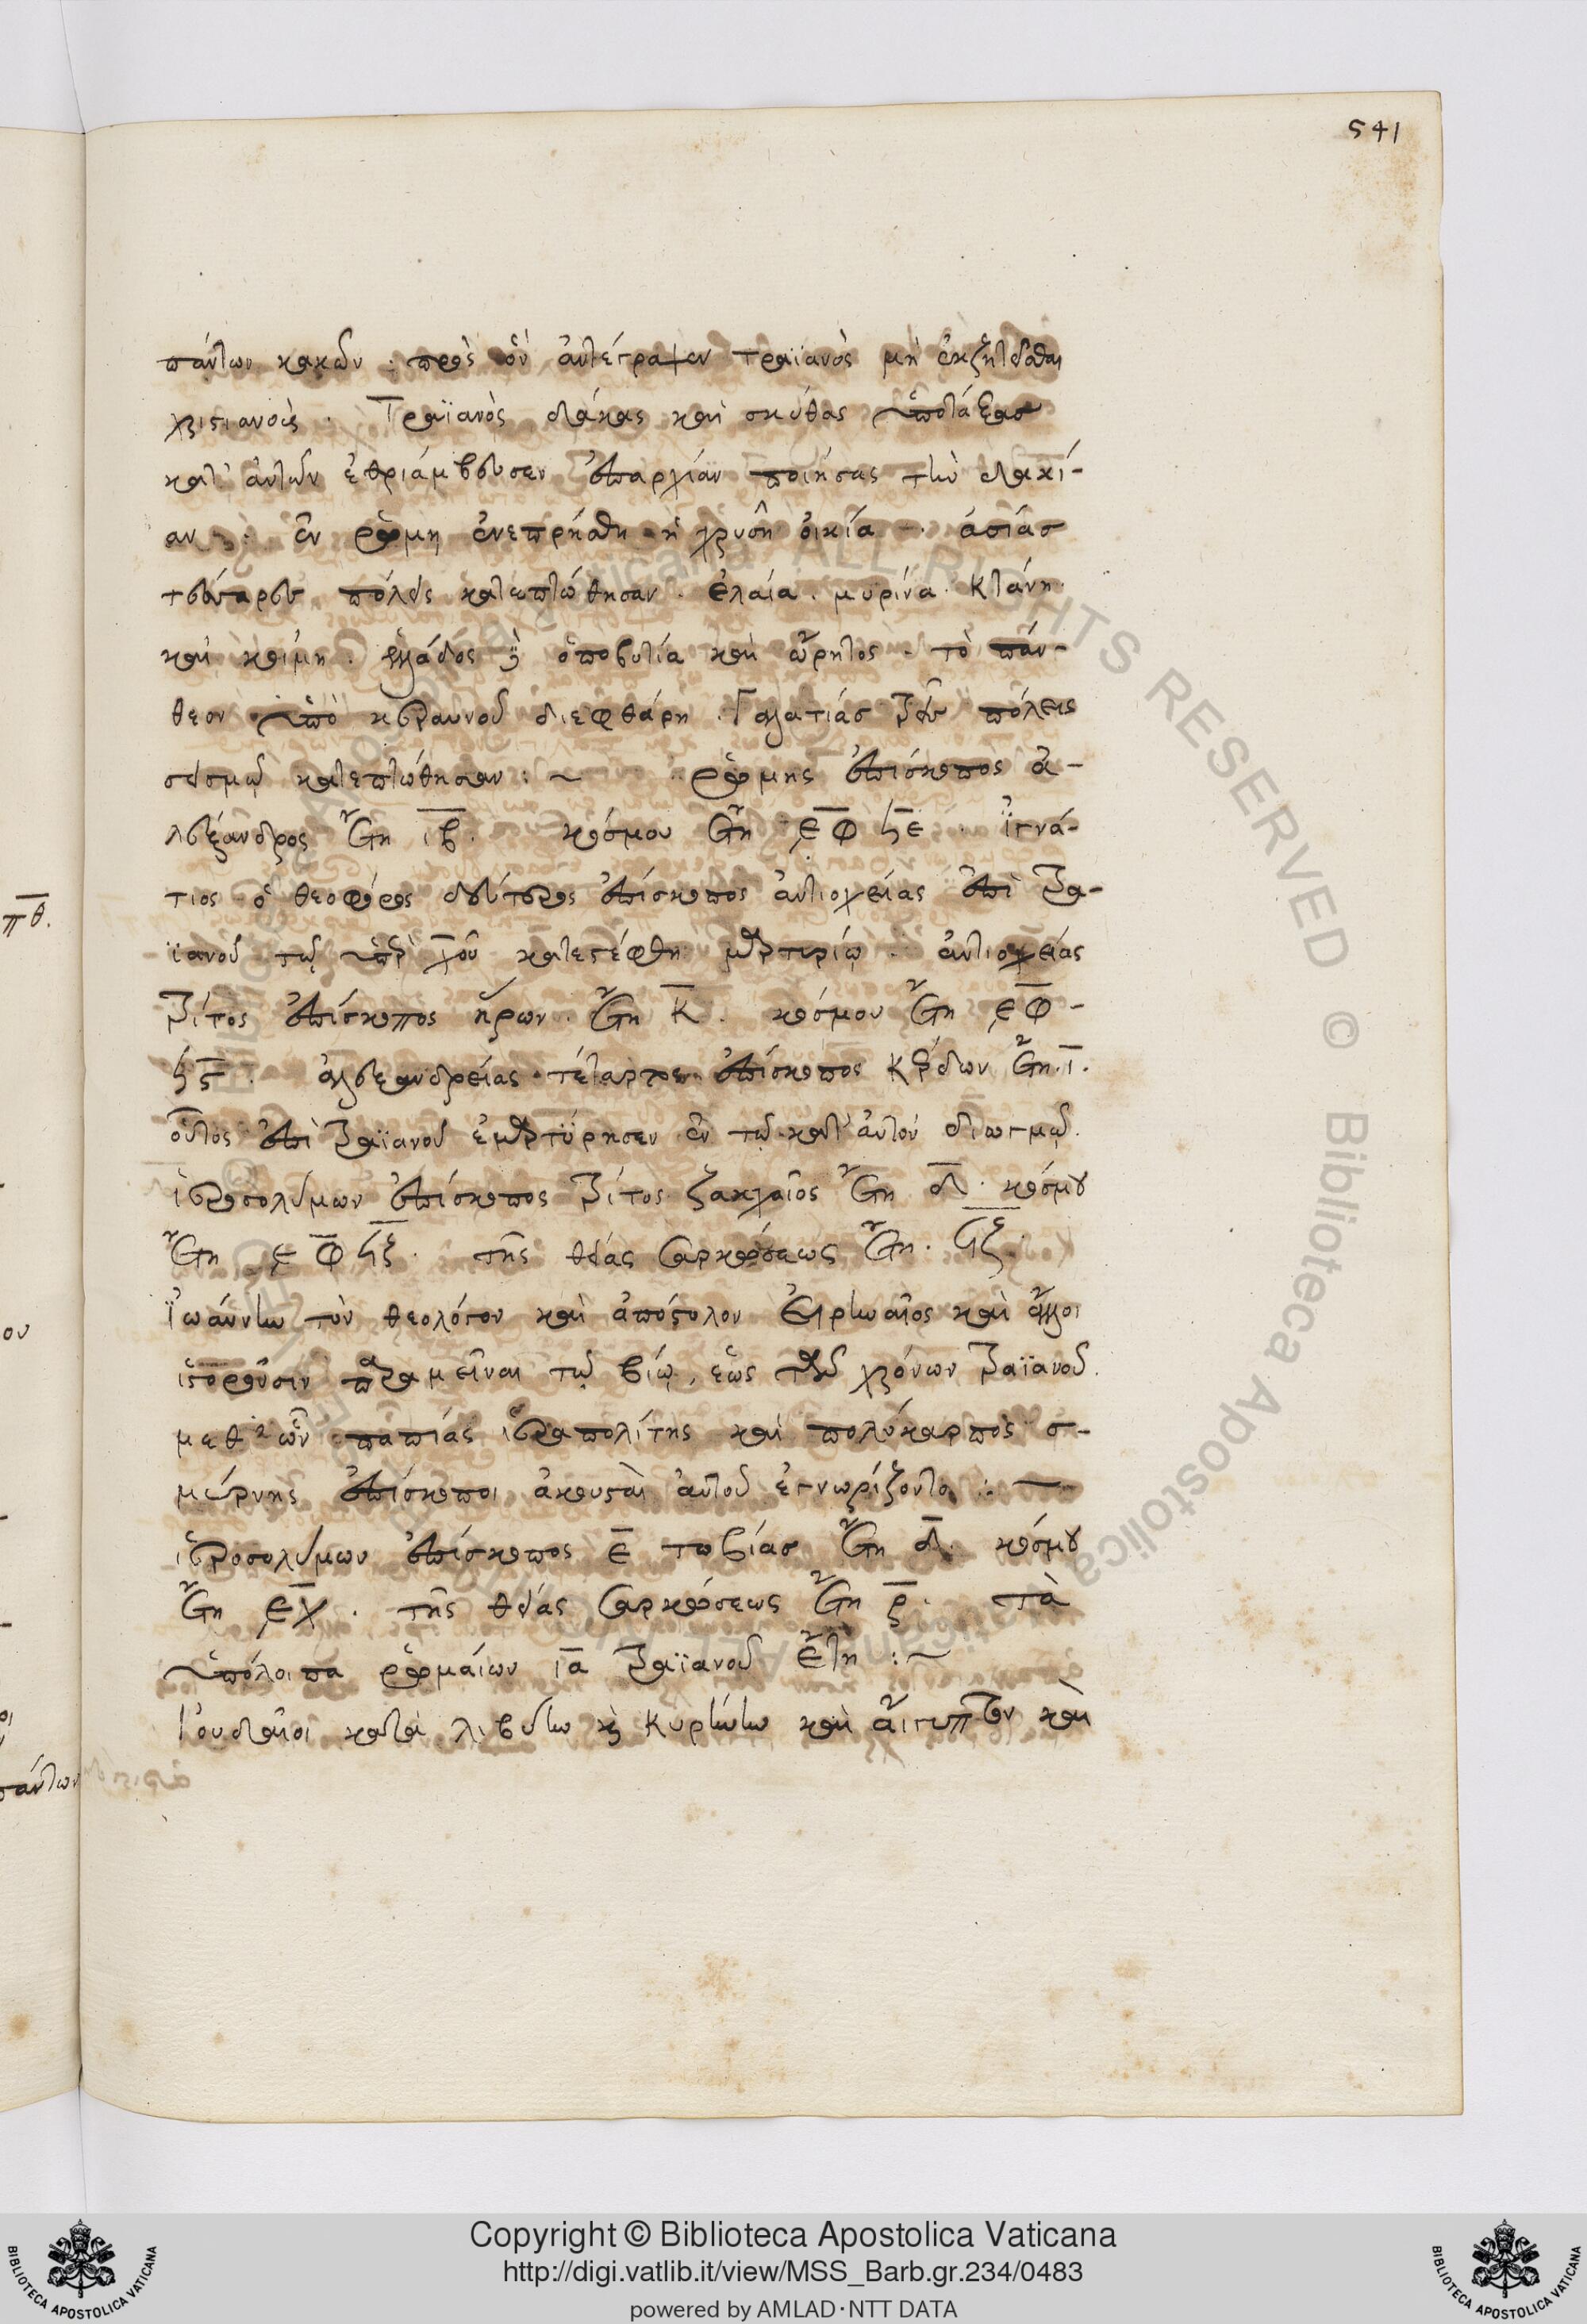 541
πάντων κακῶν · πρὸς ὃν ἀντέγραψεν τραϊανὸς μὴ ἐκζητεῖσθαι
χριστιανούς · Τραϊανὸς δάκας καὶ σκύθας ὑποτάξας
κατ' αὐτῶν ἐθριάμβευσεν ἐπαρχίαν ποιήσας τὴν δακί-
αν · ἐν ῥώμη ἐνεπρήσθη ἡ χρυσῆ οἰκία · ἀσίας
τέσσαρες πόλεις κατεπτώθησαν · ἐλαία · μυρίνα · Κτάνη
καὶ κοίμη · ἑλλάδος β ὀποβυτία καὶ ὤρητος · τὸ πάν-
θεον ὑπὸ κεραυνοῦ διεφθάρη · Γαλατίας τρεῖς πόλεις
σεισμῷ κατεπτώθησαν :~ ῥώμης ἐπίσκοπος ἀ-
λέξανδρος ἔτη ιβ. κόσμου ἔτη ͵εφϟε · ἰγνά-
τιος ὁ θεοφόρος δεύτερος ἐπίσκοπος ἀντιοχείας ἐπὶ τρα-
ϊανοῦ τῷ ὑπὲρ χυ κατεστέφθη μαρτυρίῳ · ἀντιοχείας
τρίτος ἐπίσκοπος ἥρων · ἔτη κ. κόσμου ἔτη ͵εφ-
ϟϛ · ἀλεξανδρείας τέταρτος ἐπίσκοπος κέρδων ἔτη ι.
οὗτος ἐπὶ τραϊανοῦ ἐμαρτύρησεν ἐν τῷ κατ' αὐτοῦ διωγμῷ.
ἱεροσολύμων ἐπίσκοπος τρίτος ζακχαῖος ἔτη δ. κόσμου
ἔτη ͵εφϟζ. τῆς θείας σαρκώσεως ἔτη ϟζ.
Ἰωάννην τὸν θεολόγον καὶ ἀπόστολον Εἰρηναῖος καὶ ἄλλοι
ἱστοροῦσιν παραμεῖναι τῷ βίῳ, ἕως τῶν χρόνων τραϊανοῦ.
μεθ' ὧν παπίας ἱεραπολίτης καὶ πολύκαρπος σ-
μύρνης ἐπίσκοποι ἀκουσταὶ αὐτοῦ ἐγνωρίζοντο :~
ἱεροσολύμων ἐπίσκοπος ε τωβίας ἔτη δ. κόσμου
ἔτη ͵εχ. τῆς θείας σαρκώσεως ἔτη ρ. τὰ
ὑπόλοιπα ῥωμαίων ια τραϊανοῦ ἔτη :~
Ἰουδαῖοι κατὰ λιβύην καὶ κυρήνην καὶ αἴγυπτον καὶ
πθ.
ου
πάντων
Copyright © Biblioteca Apostolica Vaticana
http://digi.vatlib.it/view/MSS_Barb.gr.234/0483
powered by AMLAD·NTT DATA